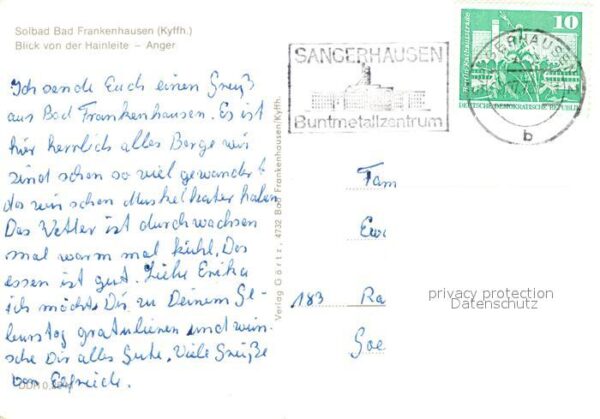 Solbad Bad Frankenhausen (Kyffh.)
Blick von der Hainleite – Anger
Ich sende Euch einen Gruß
aus Bad Frankenhausen. Es ist
hier herrlich alles Berge wir
sind schon so viel gewandert
das wir schon Muskelkater haben
Das Wetter ist durchwachsen
mal warm mal kühl. Das
essen ist gut. Liebe Erika
ich möchte Dir zu Deinem Ge-
burtstag gratulieren und wün-
sche Dir alles Gute. Viele Grüße
von Elfriede.
Verlag Görtz, 4732 Bad Frankenhausen/Kyffh.
SANGERHAUSEN
Buntmetallzentrum
10
DEUTSCHE DEMOKRATISCHE REPUBLIK
SANGERHAUSEN 2
b
Fam
Ewe
183 Ra
Goe
privacy protection
Datenschutz